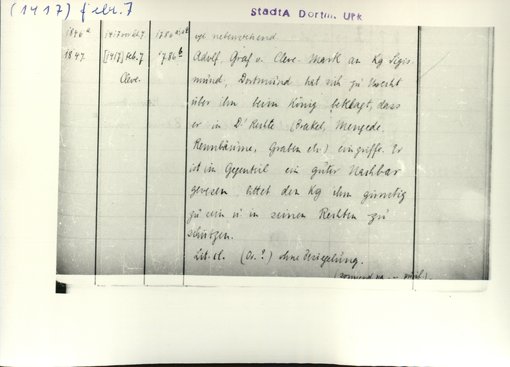 (1417) febr. 7
StadtA Dortm. Urk
1846a
1847 [1417] feb. 7 1786 b Adolf, Graf v. Cleve-Mark an Kg Sigis-
Cleve. mund, Dortmund hat sich zu Unrecht
über ihn beim König beklagt, dass
er in D' Rechte (Brakel, Mengede,
Rennbäume, Graben etc.) eingriffe. Er
ist im Gegenteil ein guter Nachbar
gewesen, bittet den Kg ihm günstig
zu sein u in seinen Rechten zu
schützen.
(Or.?) ohne Besiegelung.